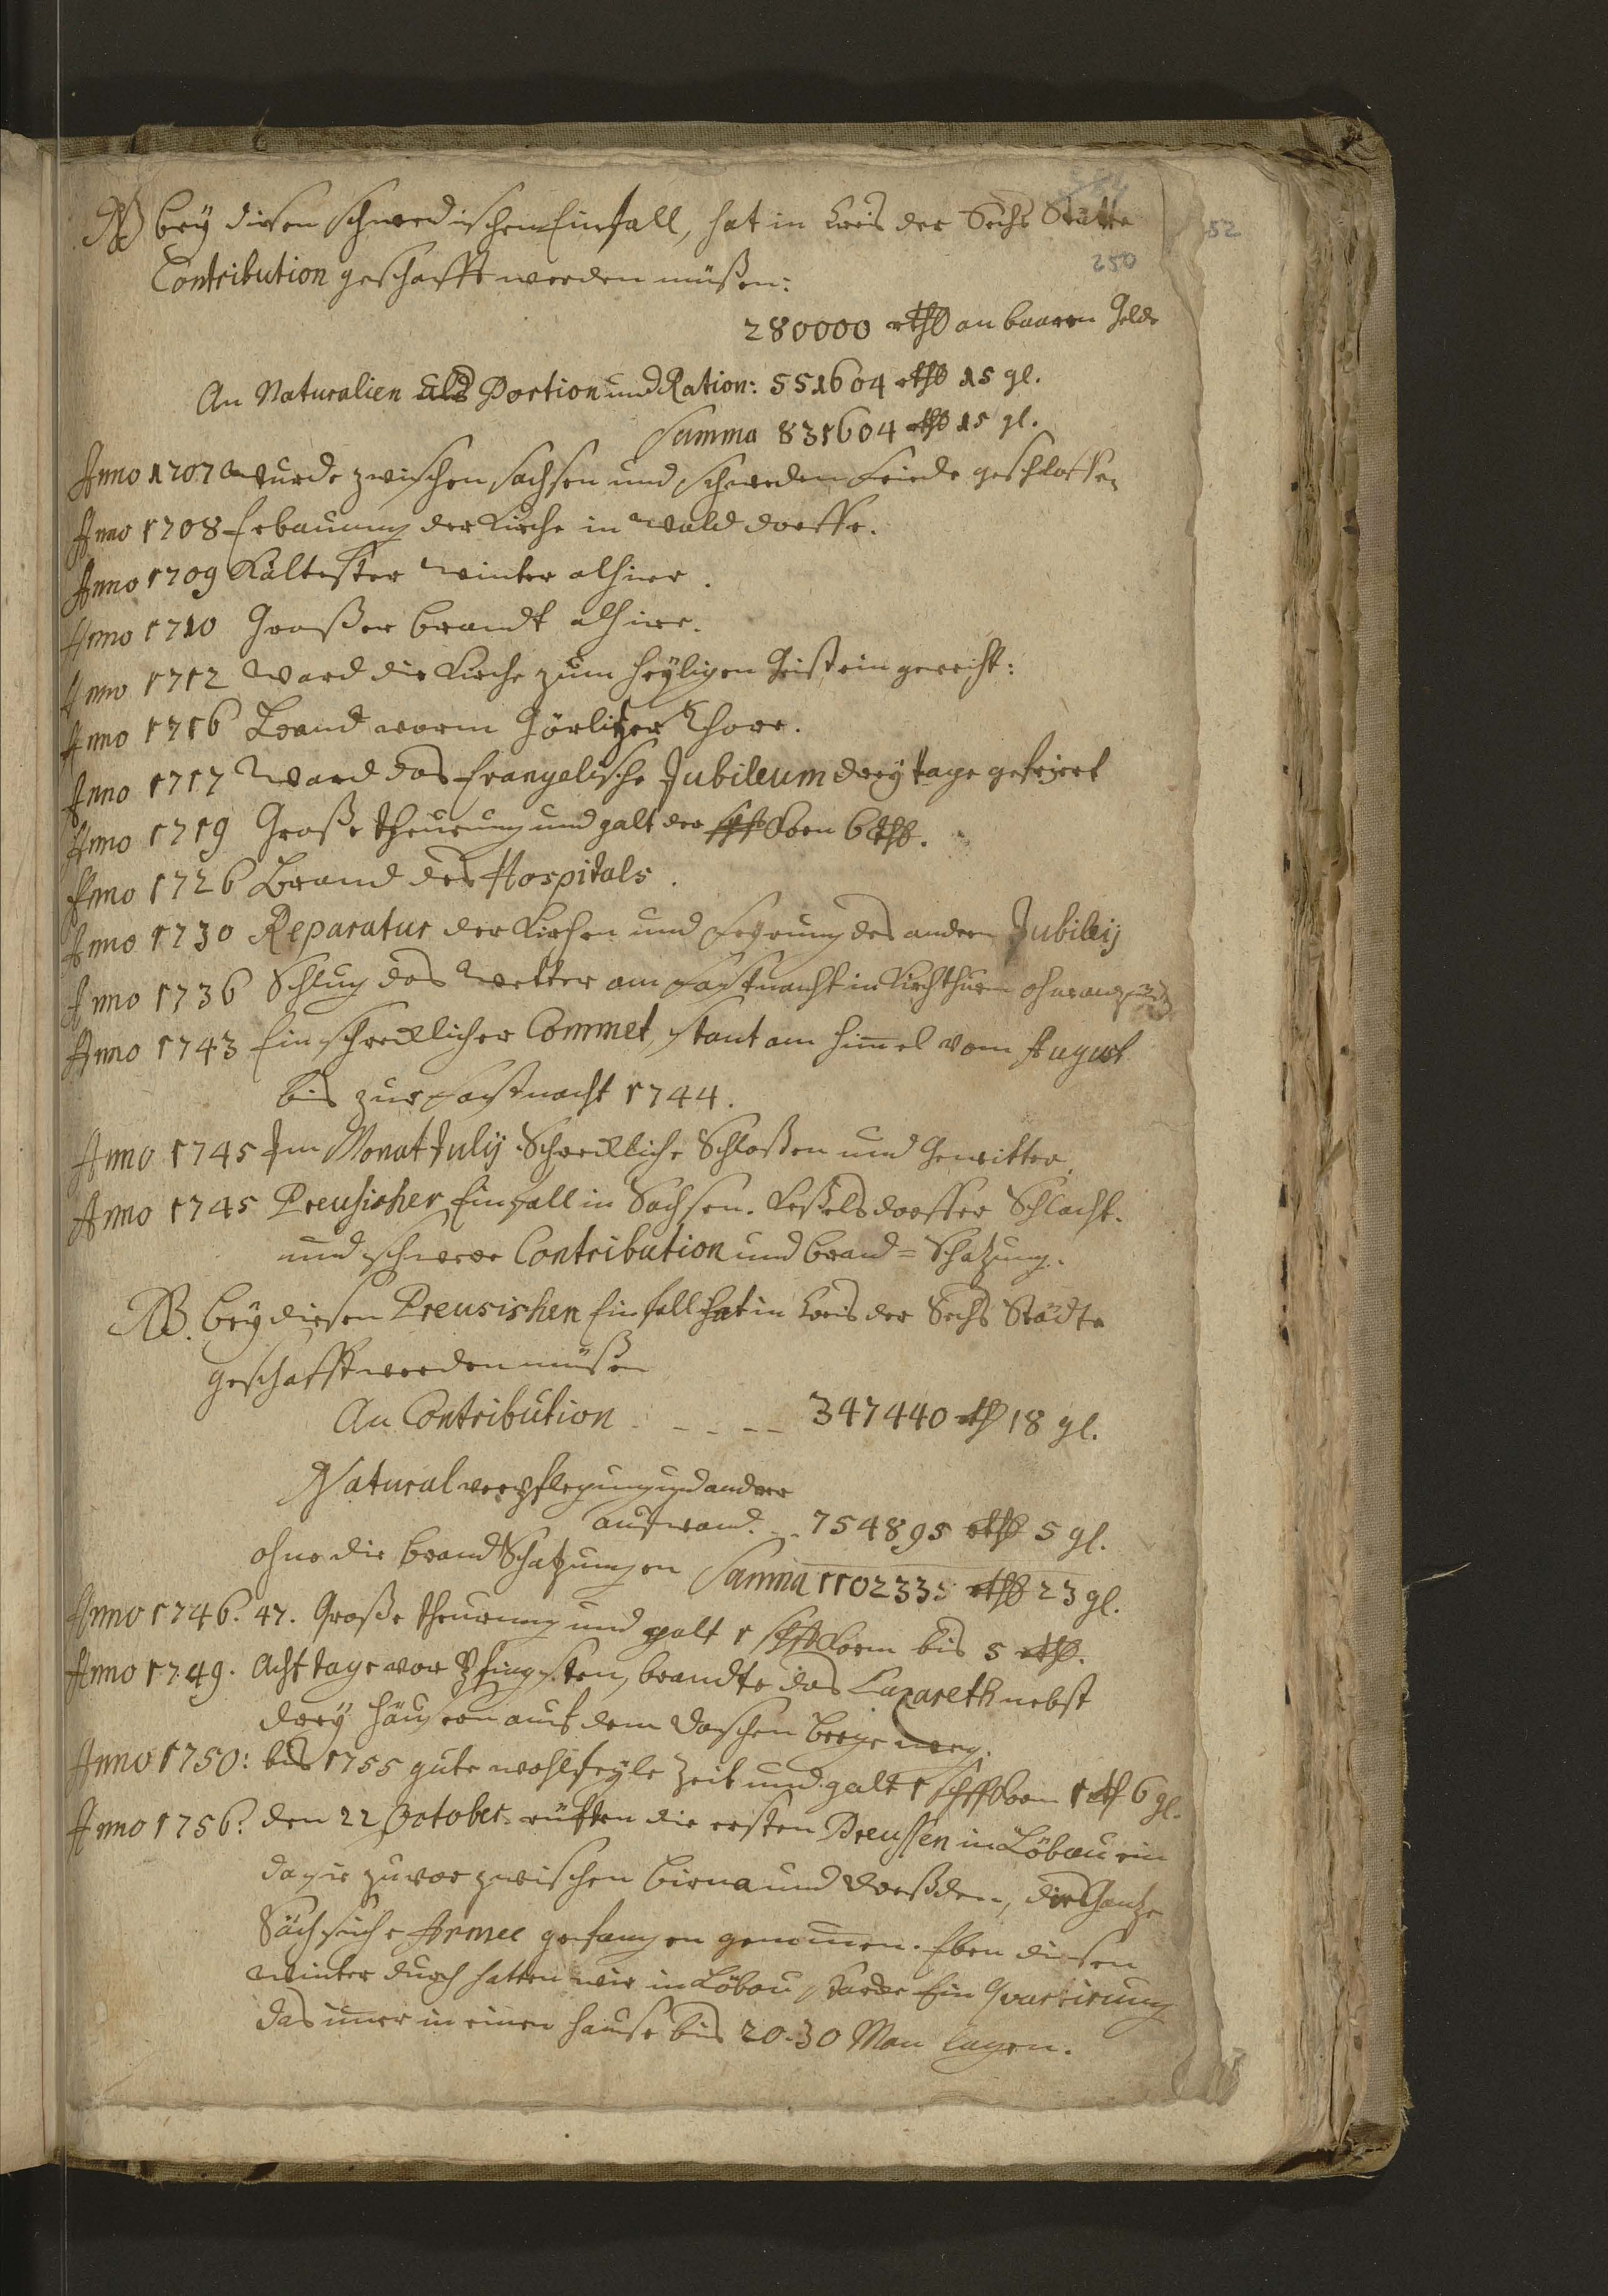 NB bey diesen Schwedischen Einfall, hat in Creis der Sechs Städte
52
250
Contribution geschafft werden müßen:
280000 rthl an baaren Gelde
An Naturalien als Portion und Ration: 551604 rthl 15 gl.
Summa 831604 rthl 15 gl.
Anno 1707 Wurde zwischen Sachsen und Schweden Friede geschlossen
Anno 1708 Erbauung der Kirche in Walddorffe.
Anno 1709 Kältester Winter alhier.
Anno 1710 Großer brandt alhier.
Anno 1712 Ward die Kirche zum heyligen Geist ein geweiht:
Anno 1716 Brand vorm Görlitzer Thore.
Anno 1717 Ward das Evangelische Jubileum drey tage gefeiert
Anno 1719 Große theurung und galt der schfl Korn 6 thl.
Anno 1726 Brand des Hospitals.
Anno 1730 Reparatur der Kirchen und Feyrung des andern Jubileij
Anno 1736 Schlug das Wetter am Fastnacht in Kirchthurm ohne
Anno 1743 Ein schrecklicher Commet, stant am Himel vom August
bis zur Fastnacht 1744.
Anno 1745 Im Monat Julij Schreckliche Schloßen und Gewitter.
Anno 1745 Preusischer Einfall in Sachsen. Keßelsdorffer Schlacht.
und schwere Contribution und brand=Schatzung.
NB. bey diesen Preusischen Einfall hat in Creis der Sechs Städte
geschafft werden müßen
An Contribution - - - - 347440 rth 18 gl.
Natural verpflegung und ander
aufwand. - - 754895 rthl 5 gl.
ohne die brand Schatzungen Samma 1102335 rthl 23 gl.
Anno 1746. 47. Große theurung und galt 1 schfl Korn bis 5 rthl.
Anno 1749. Acht tage vor Pfingsten, brandte das Lazareth nebst
drey Häusern auf dem berge weg.
Anno 1750: bis 1755 gute wohlfeyle Zeit und galt 1 schfl Korn 1 rth 6 gl.
Anno 1756: den 22 October rückten die ersten Preussen in Löbau ein
da sie zuvor zwischen Pirna und Dreßden, die Gantze
Sächsische Armee gefangen genomen. Eben diesen
Winter durch hatten wir in Löbau starcke Ein Quartirung
das imer in einen Hause bis 20-30 Man lagen.